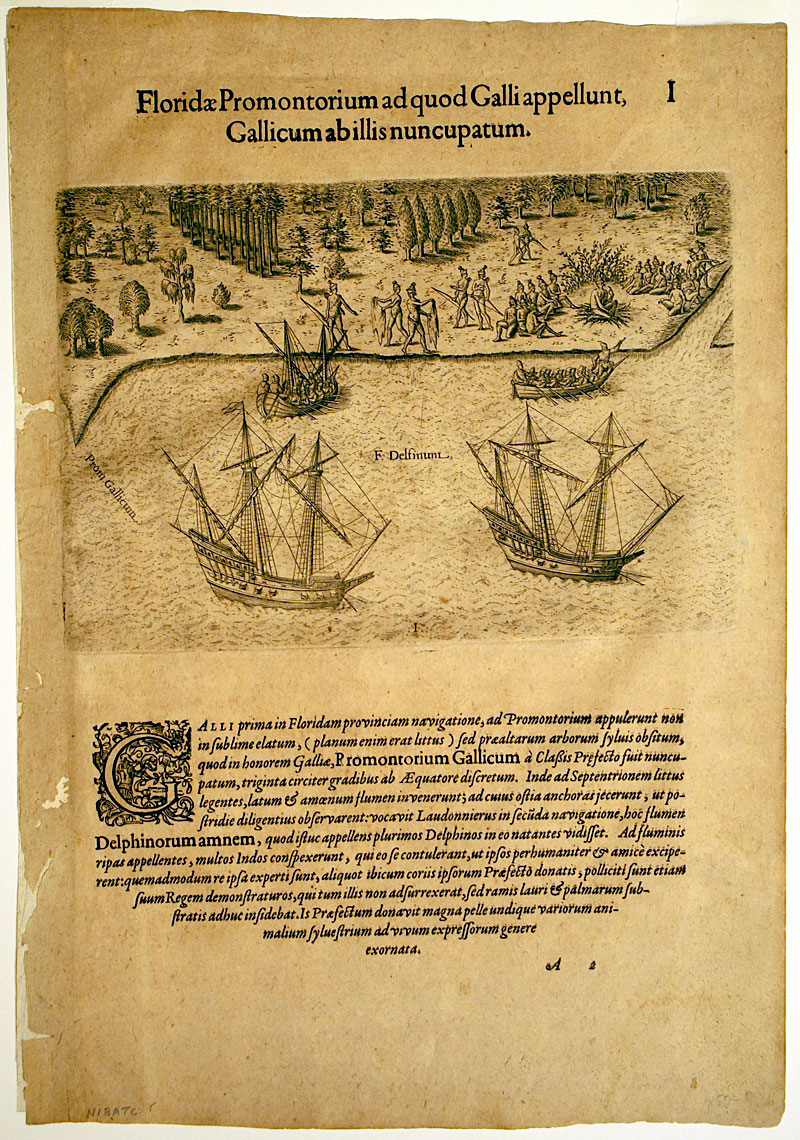 Floridæ Promontorium ad quod Galli appellunt, I
Gallicum ab illis nuncupatum.
F. Delfinum.
Prom. Gallicum.
I.
GALLI prima in Floridam provinciam navigatione, ad Promontorium appulerunt non
in sublime elatum, ( planum enim erat littus ) sed præaltarum arborum sylvis obsitum,
quod in honorem Galliæ, Promontorium Gallicum à Classis Præfecto fuit nuncu-
patum, triginta circiter gradibus ab Æquatore discretum. Inde ad Septentrionem littus
legentes, latum & amœnum flumen invenerunt, ad cuius ostia anchoras jecerunt, ut po-
stridie diligentius observarent: vocavit Laudonnierus in secūda navigatione, hoc flumen
Delphinorum amnem, quod istuc appellens plurimos Delphinos in eo natantes vidisset. Ad fluminis
ripas appellentes, multos Indos conspexerunt, qui eo se contulerant, ut ipsos perhumaniter & amicè excipe-
rent: quemadmodum re ipsa experti sunt, aliquot ibicum coriis ipsorum Præfecto donatis, polliciti sunt etiam
suum Regem demonstraturos, qui tum illis non adsurrexerat, sed ramis lauri & palmarum sub-
stratis adhuc insidebat. Is Præfectum donavit magna pelle undique variorum ani-
malium sylvestrium ad vivum expressorum genere
exornata.
A 2
NIBATC